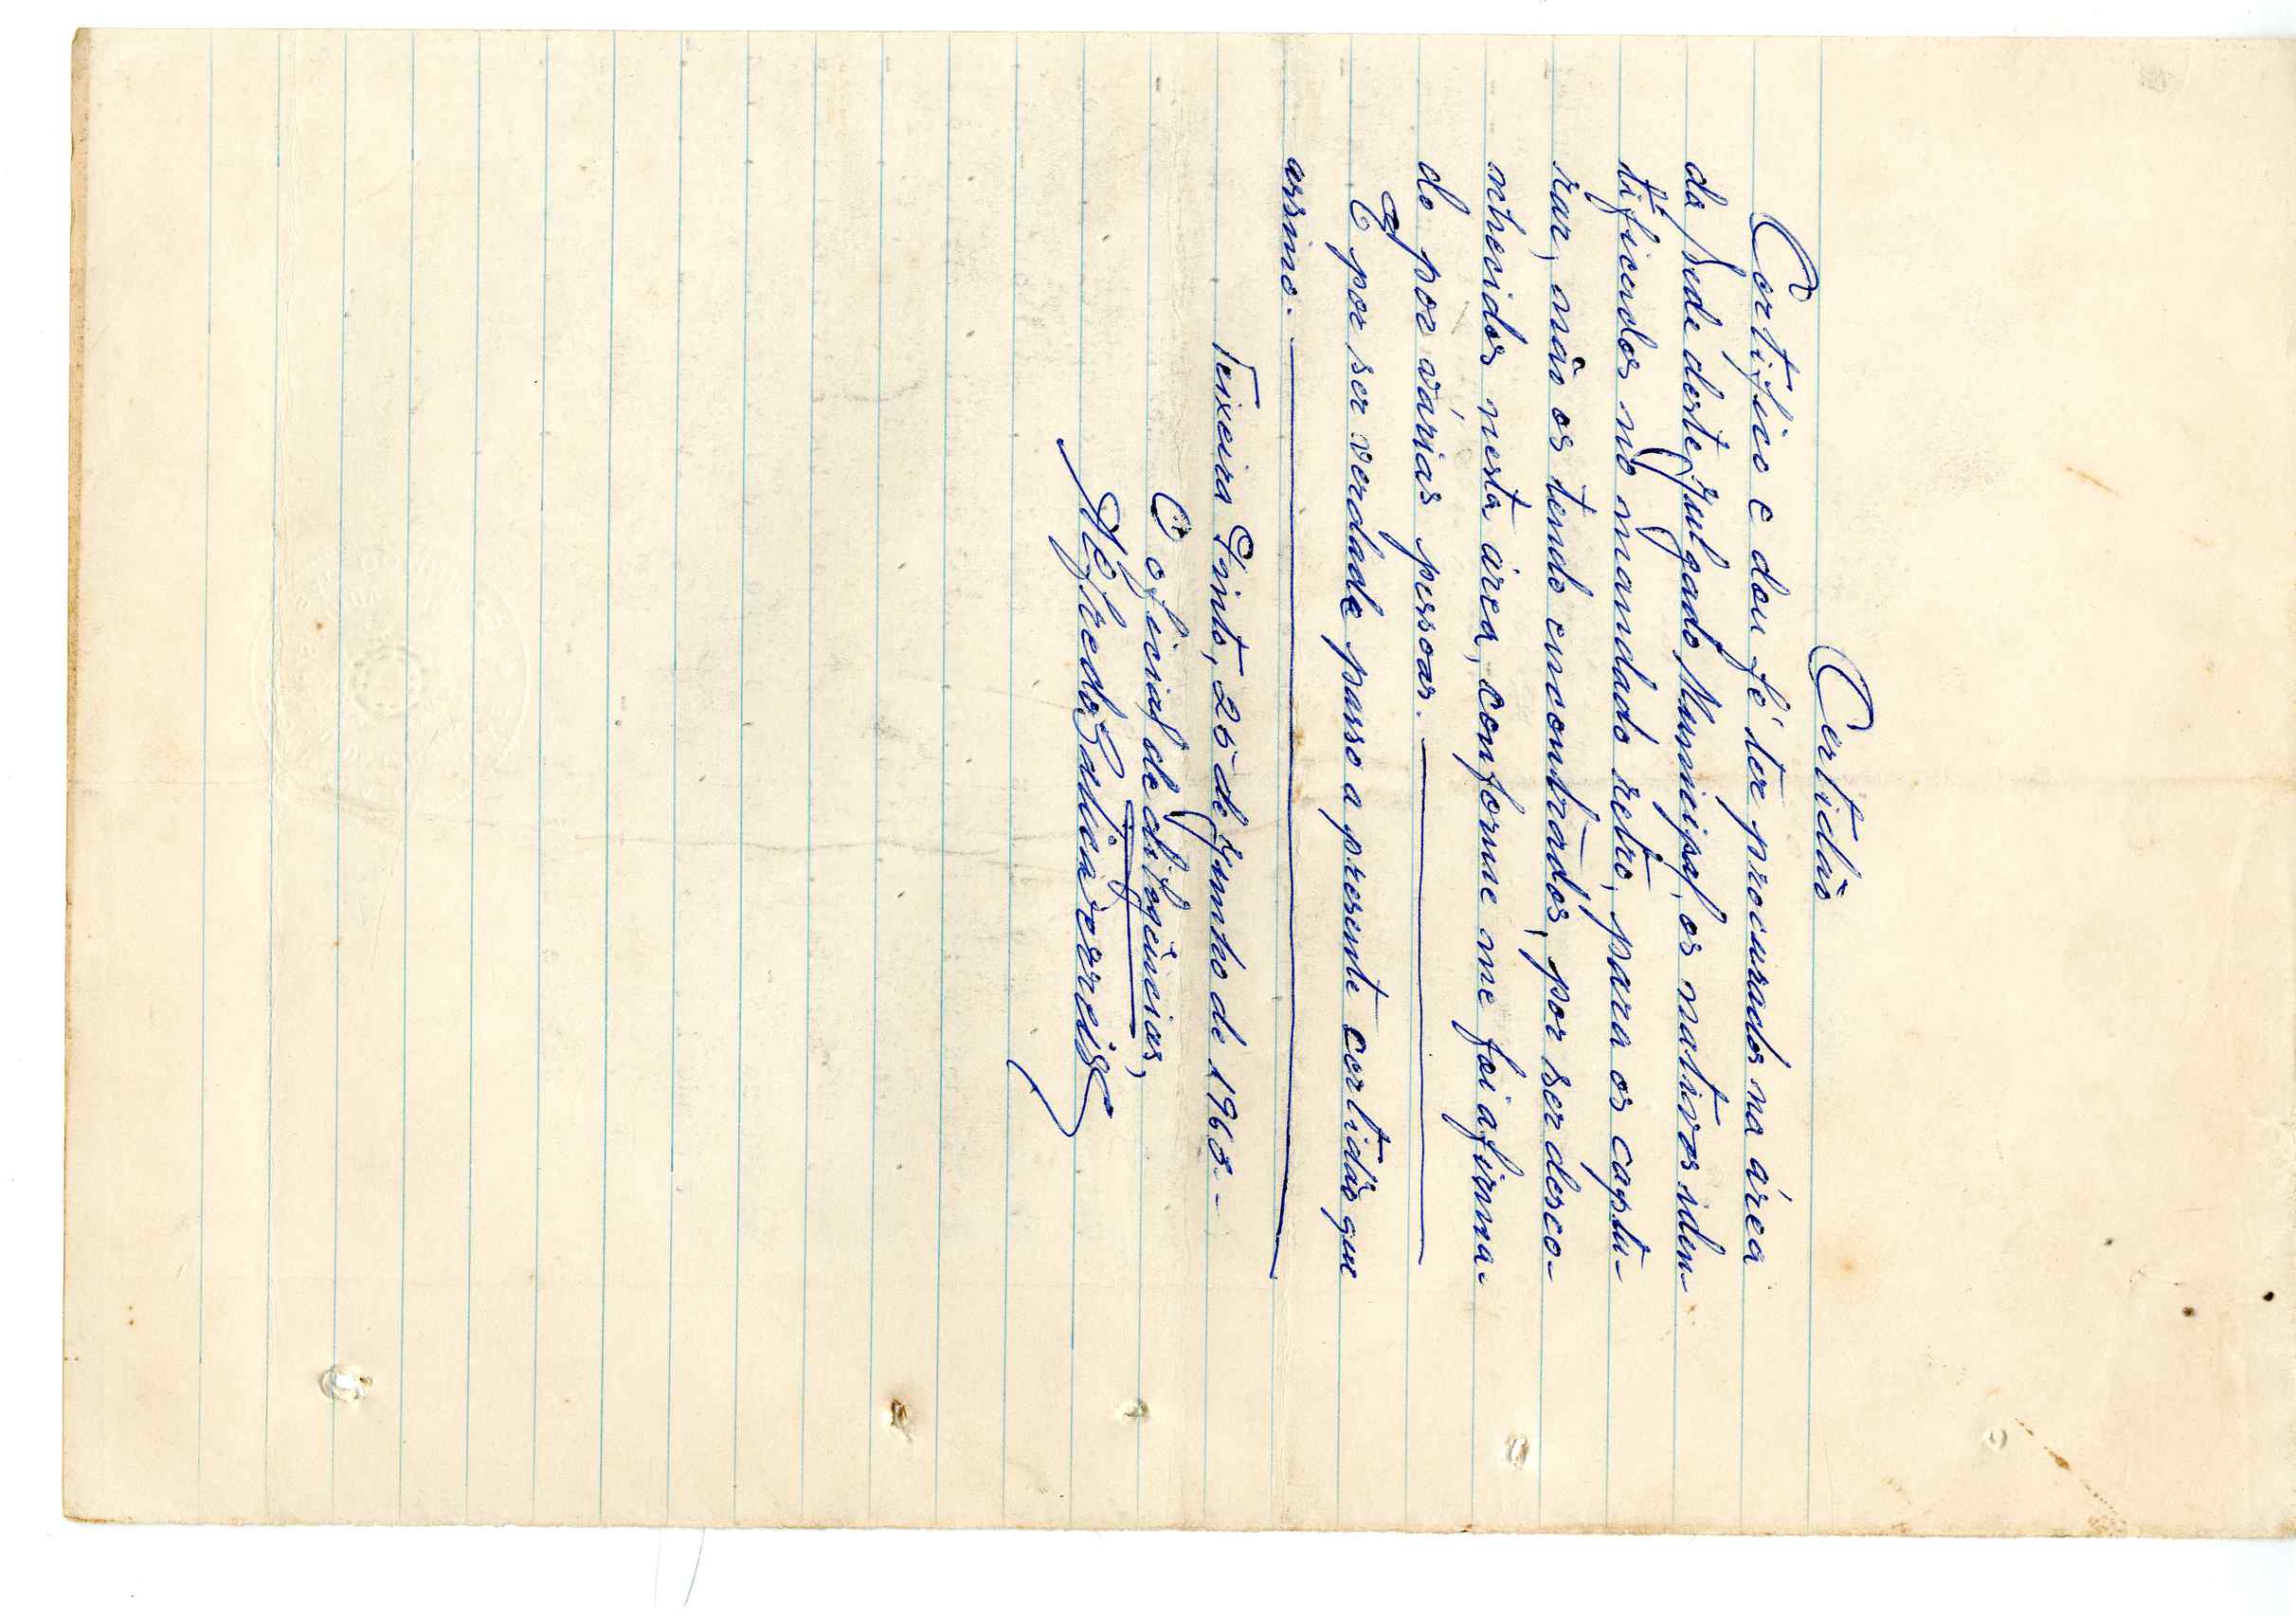 Certidão
Certifico e dou fé ter procurados na área
da sede deste Julgado Municipal, os nativos iden-
tificados no mandado retro, para os captu-
rar, não os tendo encontrados, por ser desco-
nhecidos nesta área, conforme me foi afirma-
do por várias pessoas.
E por ser verdade passo a presente certidão que
assino.
Teixeira Pinto, 26 de Junho de 1963.-
O oficial de diligências,
Alfredo Correia